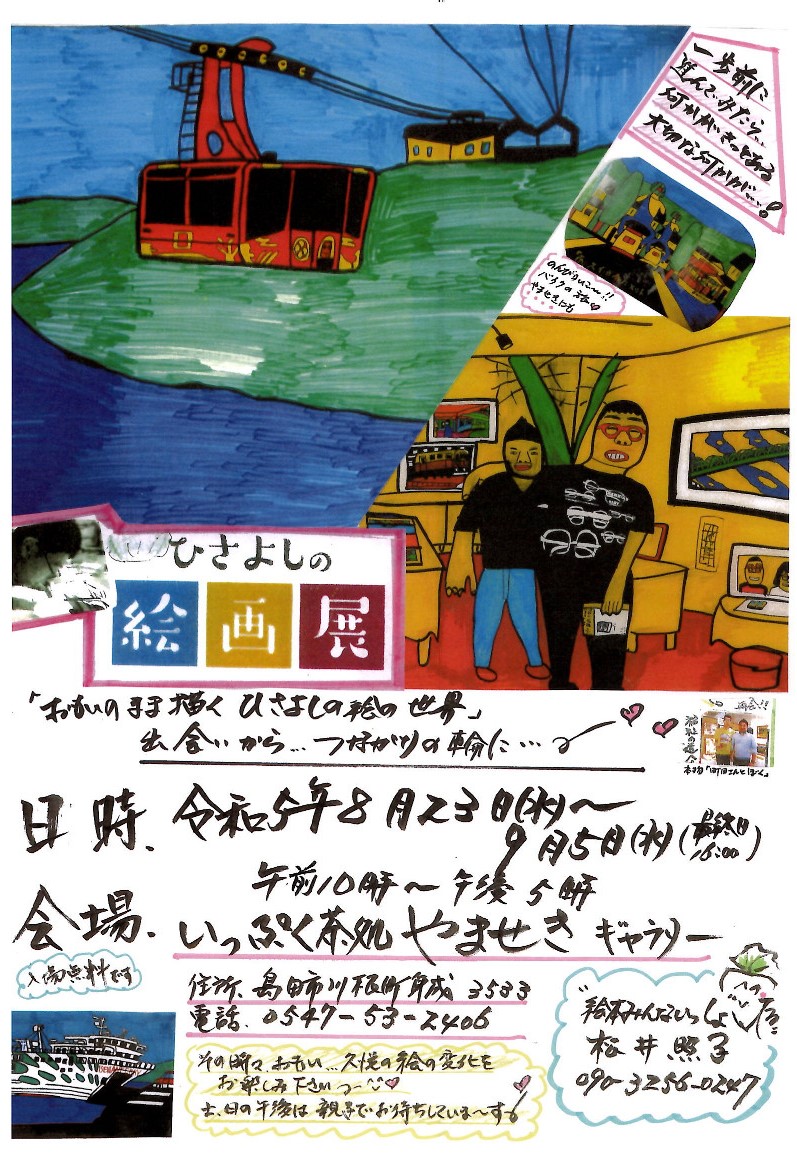 一歩前に
進んでみたら…
何かがきっとある
大切な何かが…!
のんびりいこ〜!!
バイクの旅♡
やませきにも
ひさよしの
絵画展
「おもいの手描く ひさよしの絵の世界」
出会いから…つながりの輪に…
再会!!
日時、令和5年8月23日(水)〜
9月5日(水)(最終日
16:00)
午前10時〜午後5時
会場、いっぷく茶処 やませき ギャラリー
入場無料です
住所、島田市川根町身成 3533
電話、0547-53-2406
その時々、おもい…久悦の絵の変化を
お楽しみ下さいっ〜♡
土、日の午後は親子でお待ちしていま〜す
絵本みんないっしょ
松井照子
090-3256-0247